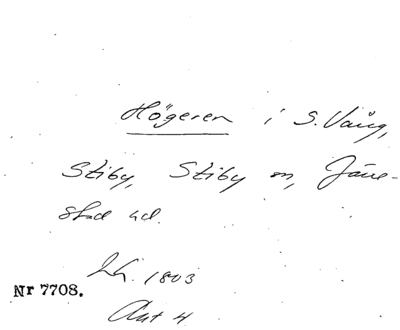 Högeren i S. Vång,
Stiby, Stiby sn, Järre-
stad hd.
1803
Nr 7708.
Akt 4